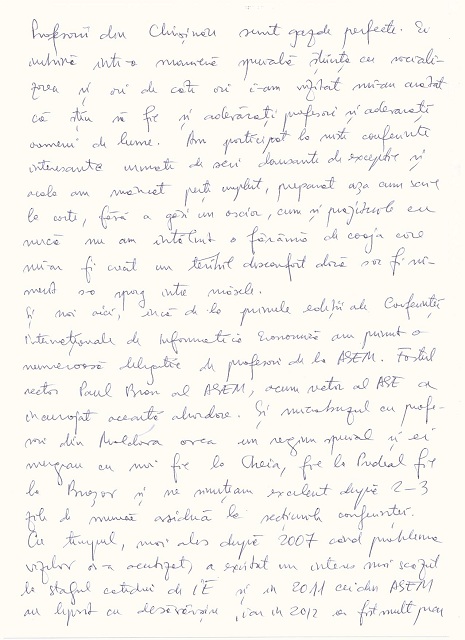 Profesorii din Chișinău sunt gazde perfecte. Ei
îmbină într-o manieră specială știința cu sociali-
zarea și ori de câte ori i-am vizitat mi-au arătat
că știu să fie și adevărați profesori și adevărați
oameni de lume. Am participat la niște conferințe
interesante urmate de seri dansante de excepție și
acolo am mâncat pește umplut, preparat așa cum scrie
la carte, fără a găsi un oscior, cum și prăjiturile cu
nucă nu am întâlnit o fărâmă de coajă care
mi-ar fi creat un teribil disconfort dacă s-ar fi ni-
merit s-o sparg între măsele.
Și noi aici, încă de la primele ediții ale Conferinței
Internaționale de Informatică Economică am primit o
numeroasă delegație de profesori de la ASEM. Fostul
rector Paul Bran al ASEM, acum rector al ASE a
încurajat această abordare. Și microbuzul cu profe-
sori din Moldova avea un regim special și ei
mergeau cu noi fie la Cheia, fie la Predeal fie
la Brașov și ne simțeam excelent după 2-3
zile de muncă asiduă la secțiunile conferinței.
Cu timpul, mai ales după 2007 când problema
vizelor s-a acutizat, a existat un interes mai scăzut
la staful catedrei de IE și în 2011 cei din ASEM
au lipsit cu desăvârșire, iar în 2012 au fost mult prea